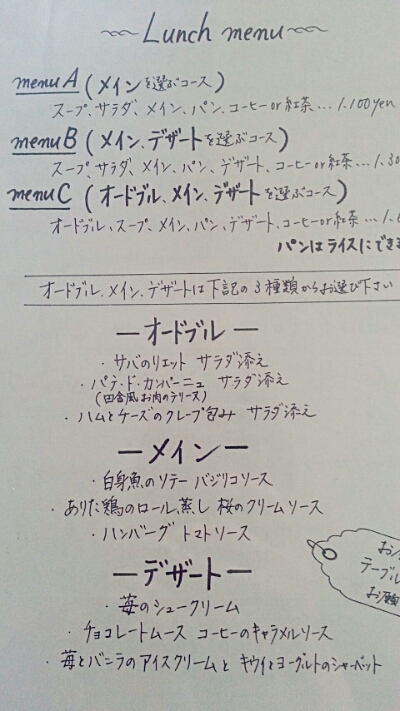 Lunch menu
menu A (メインを選ぶコース)
スープ、サラダ、メイン、パン、コーヒーor紅茶...1.100yen
menu B (メイン、デザートを選ぶコース)
スープ、サラダ、メイン、パン、デザート、コーヒーor紅茶...1.30
menu C (オードブル、メイン、デザートを選ぶコース)
オードブル、スープ、メイン、パン、デザート、コーヒーor紅茶...1.
パンはライスにでき
オードブル、メイン、デザートは下記の3種類からお選び下さい
ーオードブルー
・サバのリエット サラダ添え
・パテ・ド・カンパーニュ サラダ添え
(田舎風お肉のテリーヌ)
・ハムとチーズのクレープ包み サラダ添え
ーメインー
・白身魚のソテー バジリコソース
・ありた鶏のロール蒸し 桜のクリームソース
・ハンバーグ トマトソース
ーデザートー
・苺のシュークリーム
・チョコレートムース コーヒーのキャラメルソース
・苺とバニラのアイスクリームと キウイとヨーグルトのシャーベット
テーブル
お願